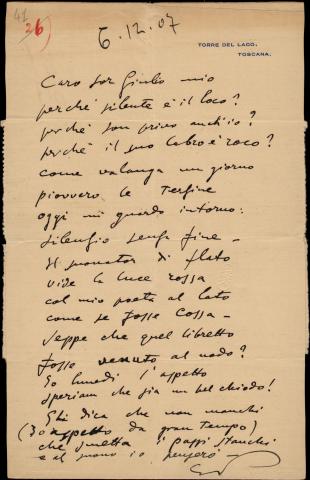 41
26)
6.12.07
TORRE DEL LAGO,
TOSCANA.
Caro Sor Giulio mio
perché silente è il loco?
perché son privo anch'io?
perché il suo labro è roco?
come valanga un giorno
piovvero le terzine
oggi mi guardo intorno:
silenzio senza fine –
Il sonator di flato
vide la luce rossa
col mio poeta al lato
come se fosse cossa –
seppe che quel libretto
fosse venuto al nodo?
Io lunedì l'aspetto
speriam che sia un bel chiodo!
Gli dica che non manchi
(Io aspetto da gran tempo)
che smetta i passi stanchi
e al suono io